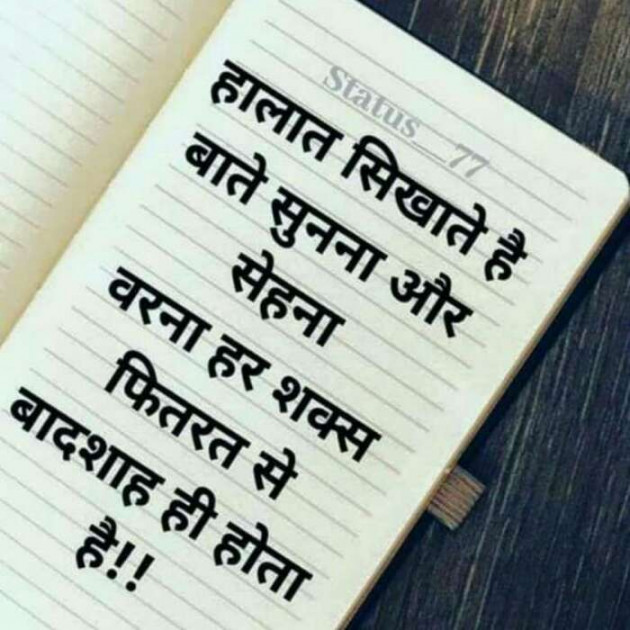 Status__77
हालात सिखाते है
बाते सुनना और
सेहना
वरना हर शक्स
फितरत से
बादशाह ही होता
है!!